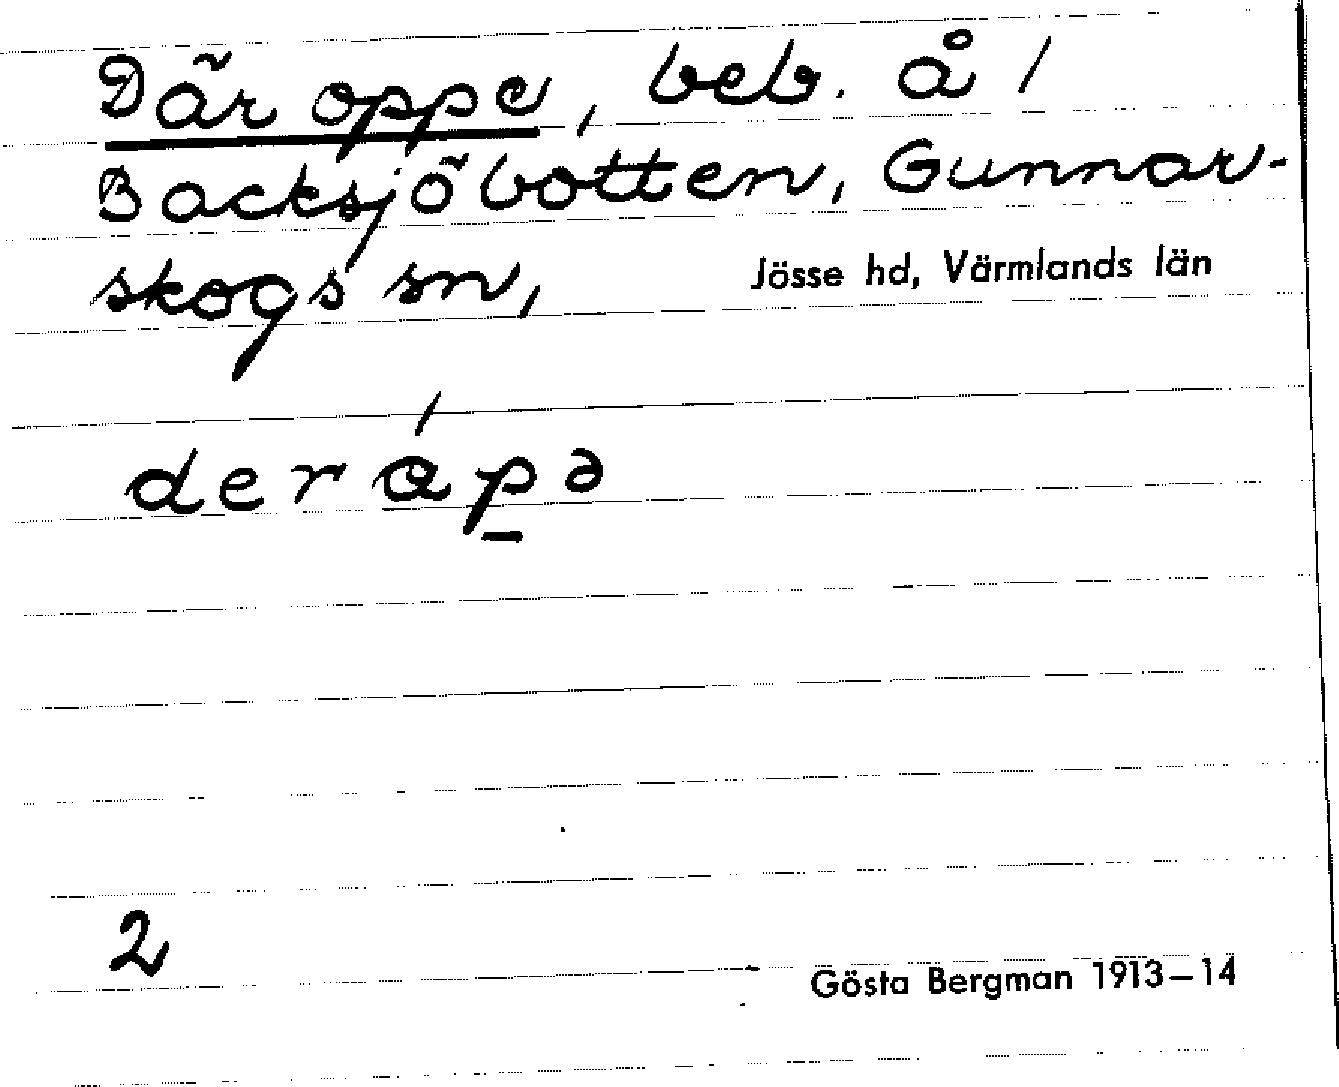 Där oppe, beb. å /
Backsjöbotten, Gunnar-
skogs sn, Jösse hd, Värmlands län
derápə
2
Gösta Bergman 1913–14